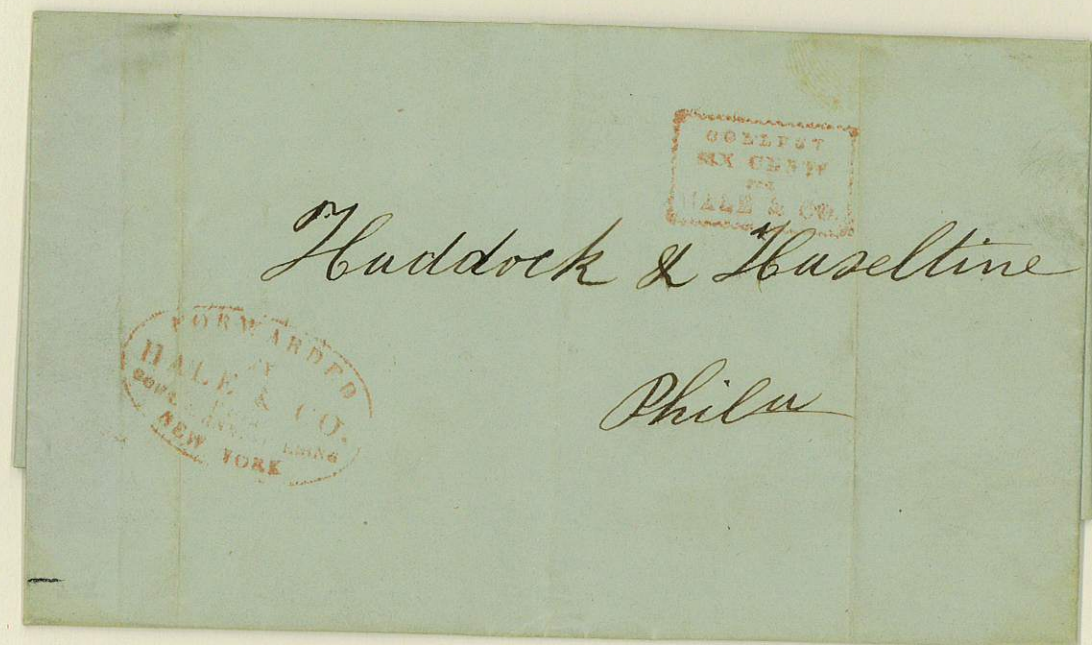 COLLECT
SIX CENTS
FOR
HALE & CO.
Haddock & Haseltine
Phila
FORWARDED
BY
HALE & CO.
NEW YORK